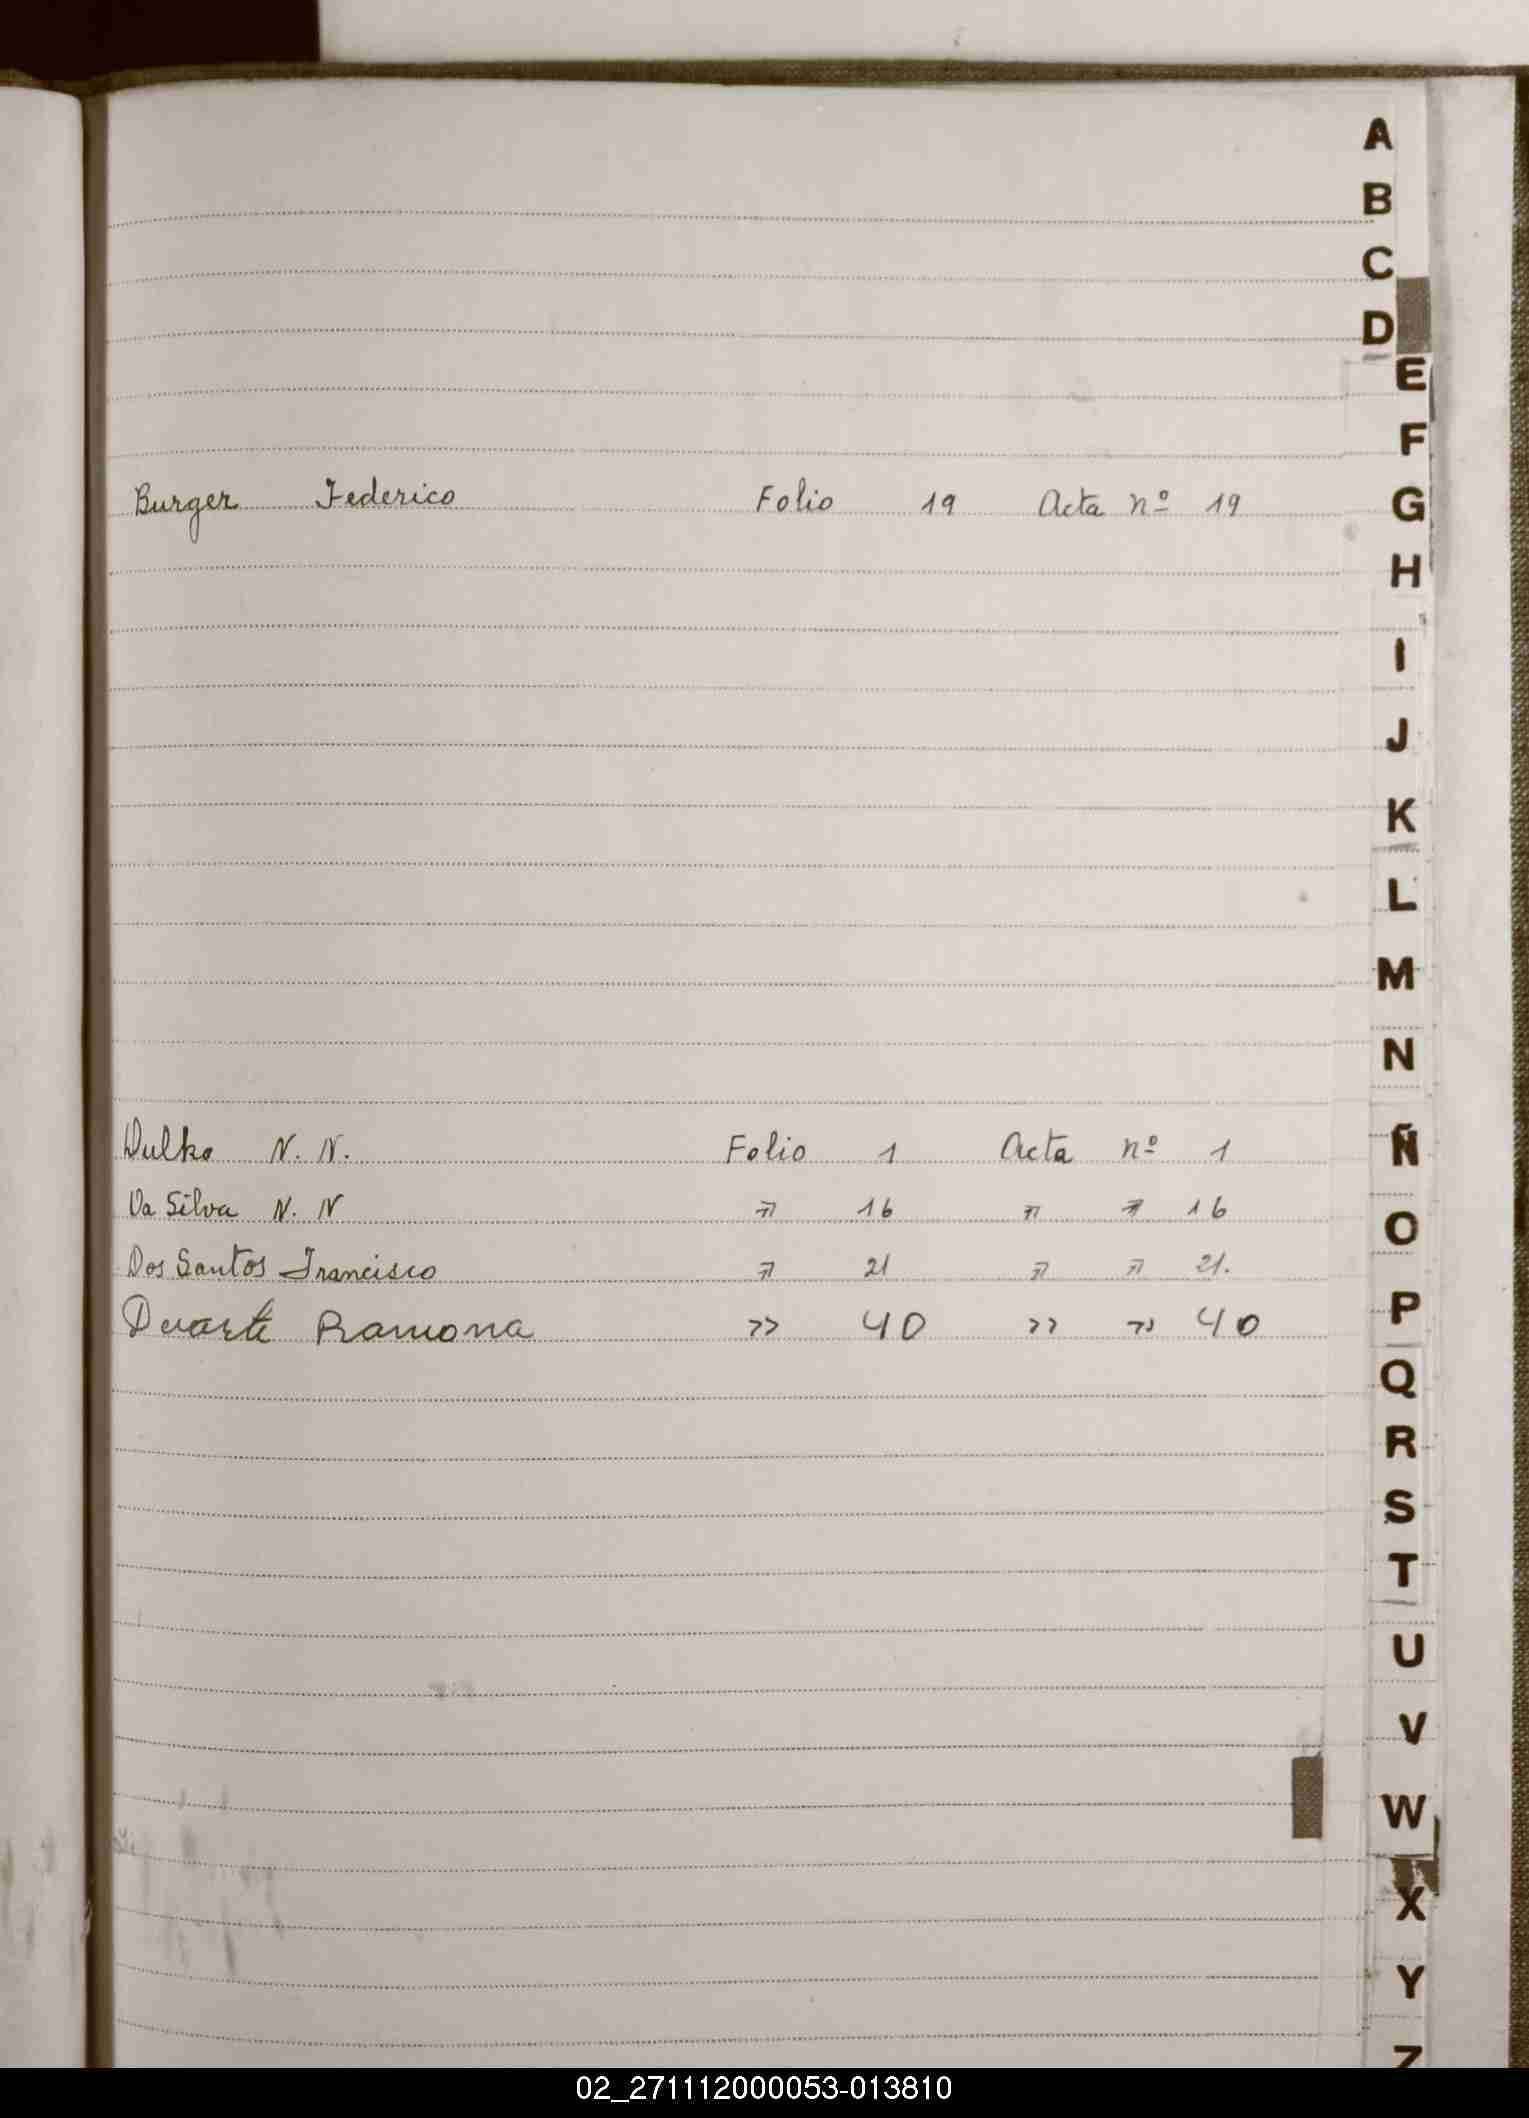 A
B
C
D
E
F
Burger Federico Folio 19 Acta nº 19
G
H
I
J
K
L
M
N
Dulko N. N. Folio 1 Acta nº 1
Ñ
Da Silva N. N " 16 " " 16
O
Dos Santos Francisco " 21 " " 21.
Duarte Ramona " 40 " " 40
P
Q
R
S
T
U
V
W
X
Y
Z
02_271112000053-013810